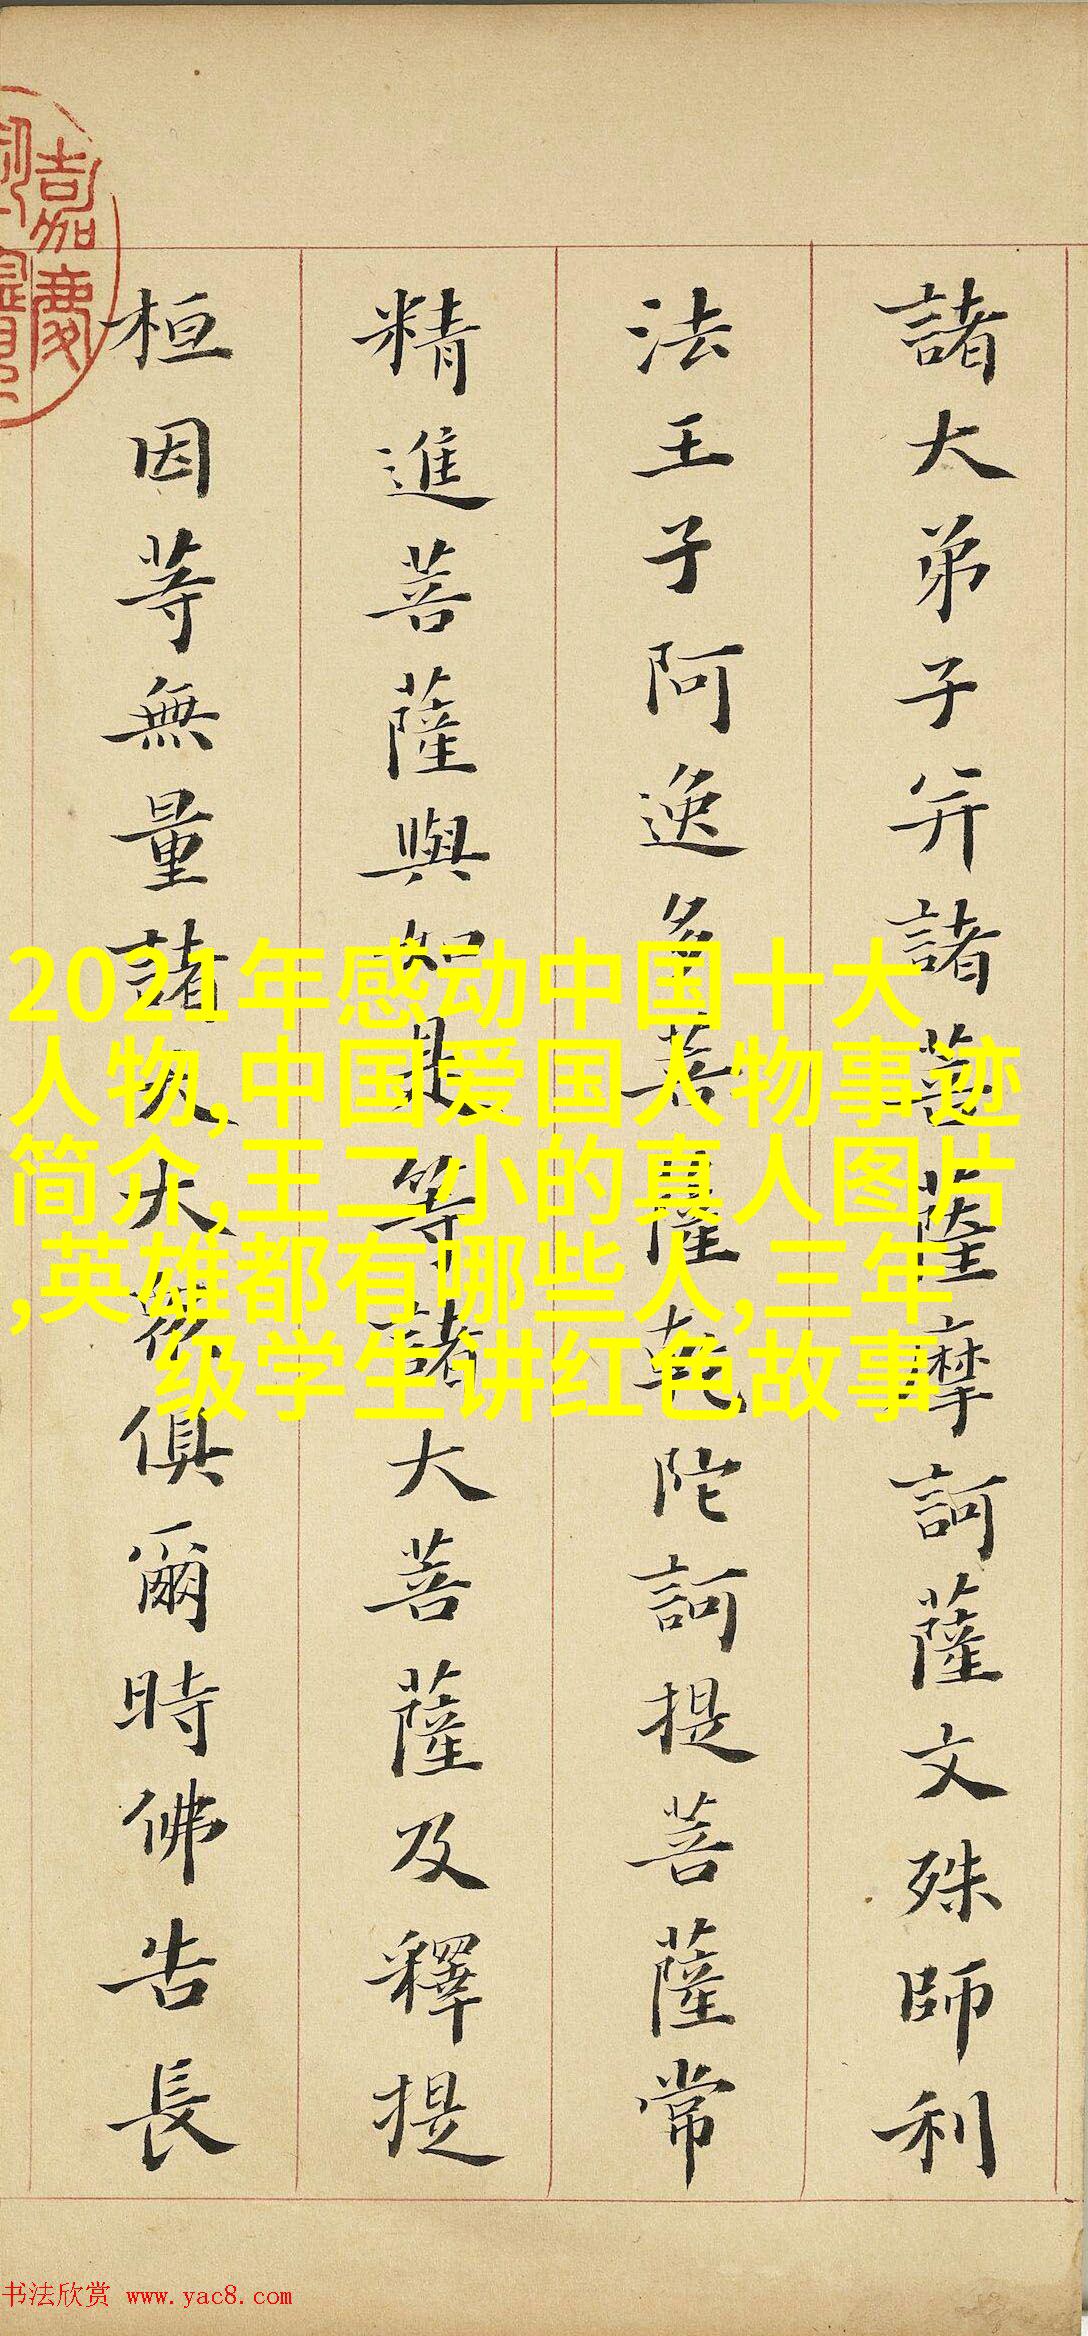 諸大弟子并諸菩薩摩訶薩文殊師利
法王子阿逸多菩薩乾陀訶提菩薩常
精進菩薩與如是等諸大菩薩及釋提
桓因等無量諸天大衆俱爾時佛告長
嘉慶
2021年感动中国十大
人物,中国爱国人物事迹
简介,王二小的真人图片
,英雄都有哪些人,三年
级学生讲红色故事
书法欣赏 www.yac8.com